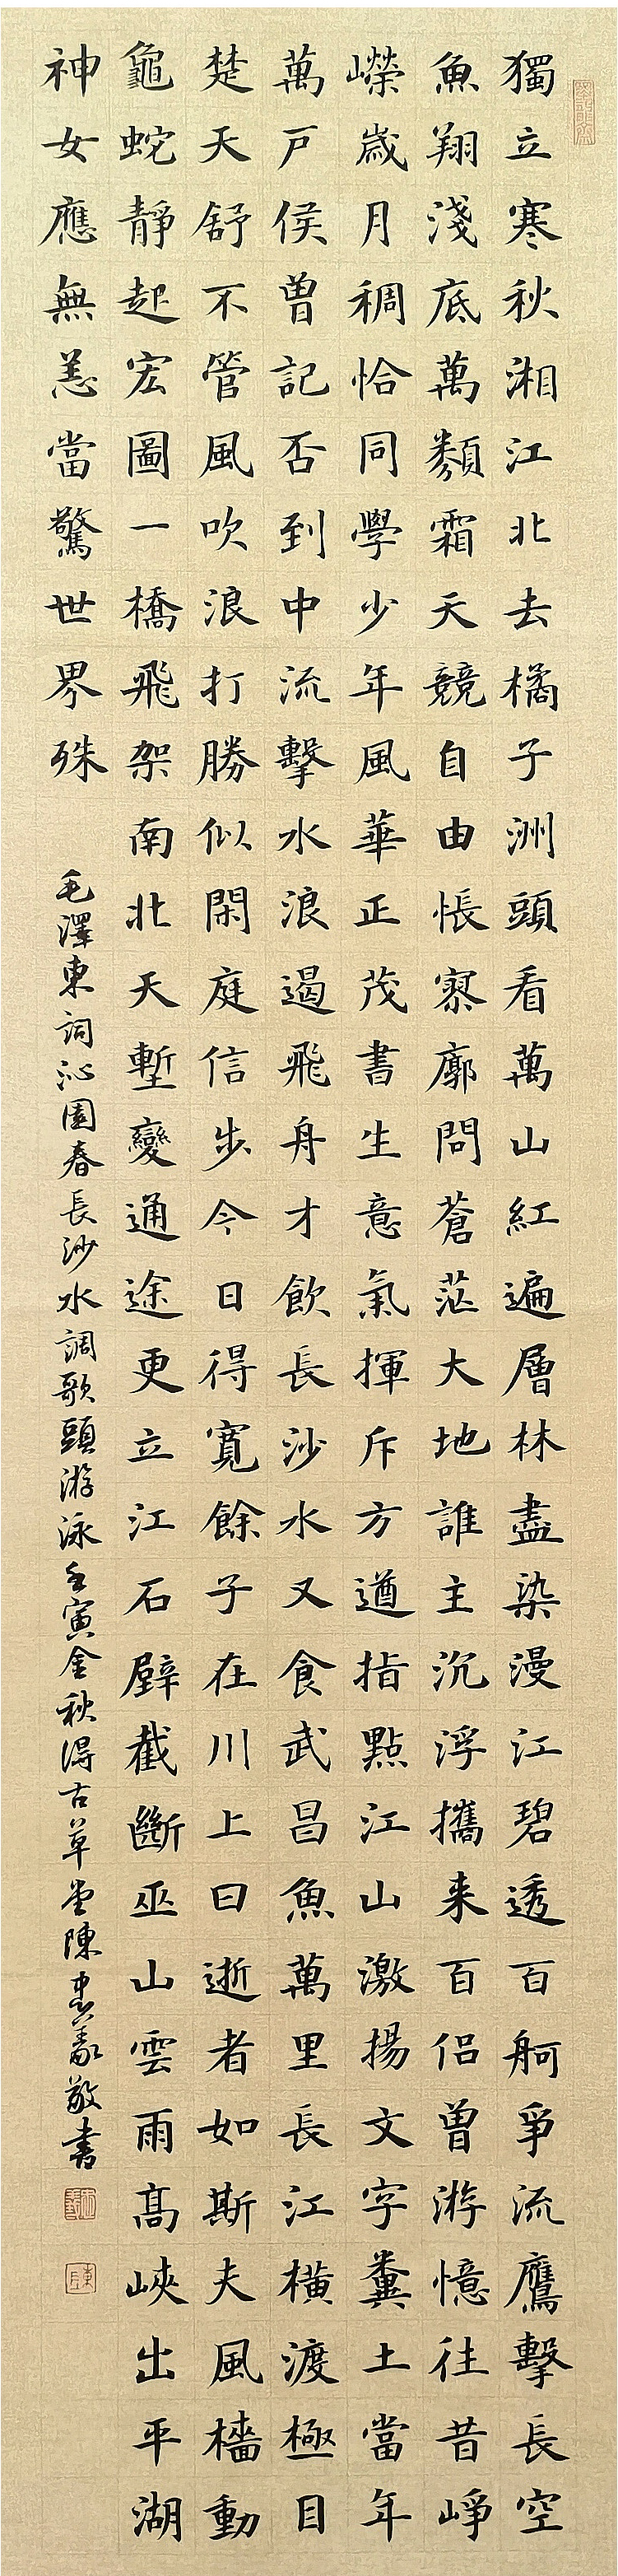 獨立寒秋湘江北去橘子洲頭看萬山紅遍層林盡染漫江碧透百舸爭流鷹擊長空
魚翔淺底萬類霜天競自由悵寥廓問蒼茫大地誰主沉浮攜来百侣曾游憶往昔崢
嶸歲月稠恰同學少年風華正茂書生意氣揮斥方遒指點江山激揚文字糞土當年
萬户侯曾記否到中流擊水浪遏飛舟才飲長沙水又食武昌魚萬里長江橫渡極目
楚天舒不管風吹浪打勝似閑庭信步今日得寬餘子在川上曰逝者如斯夫風檣動
龜蛇靜起宏圖一橋飛架南北天塹變通途更立江石壁截斷巫山雲雨髙峽出平湖
神女應無恙當驚世界殊
毛澤東詞沁園春長沙水調歌頭游泳壬寅金秋得古草堂陳惠義敬書